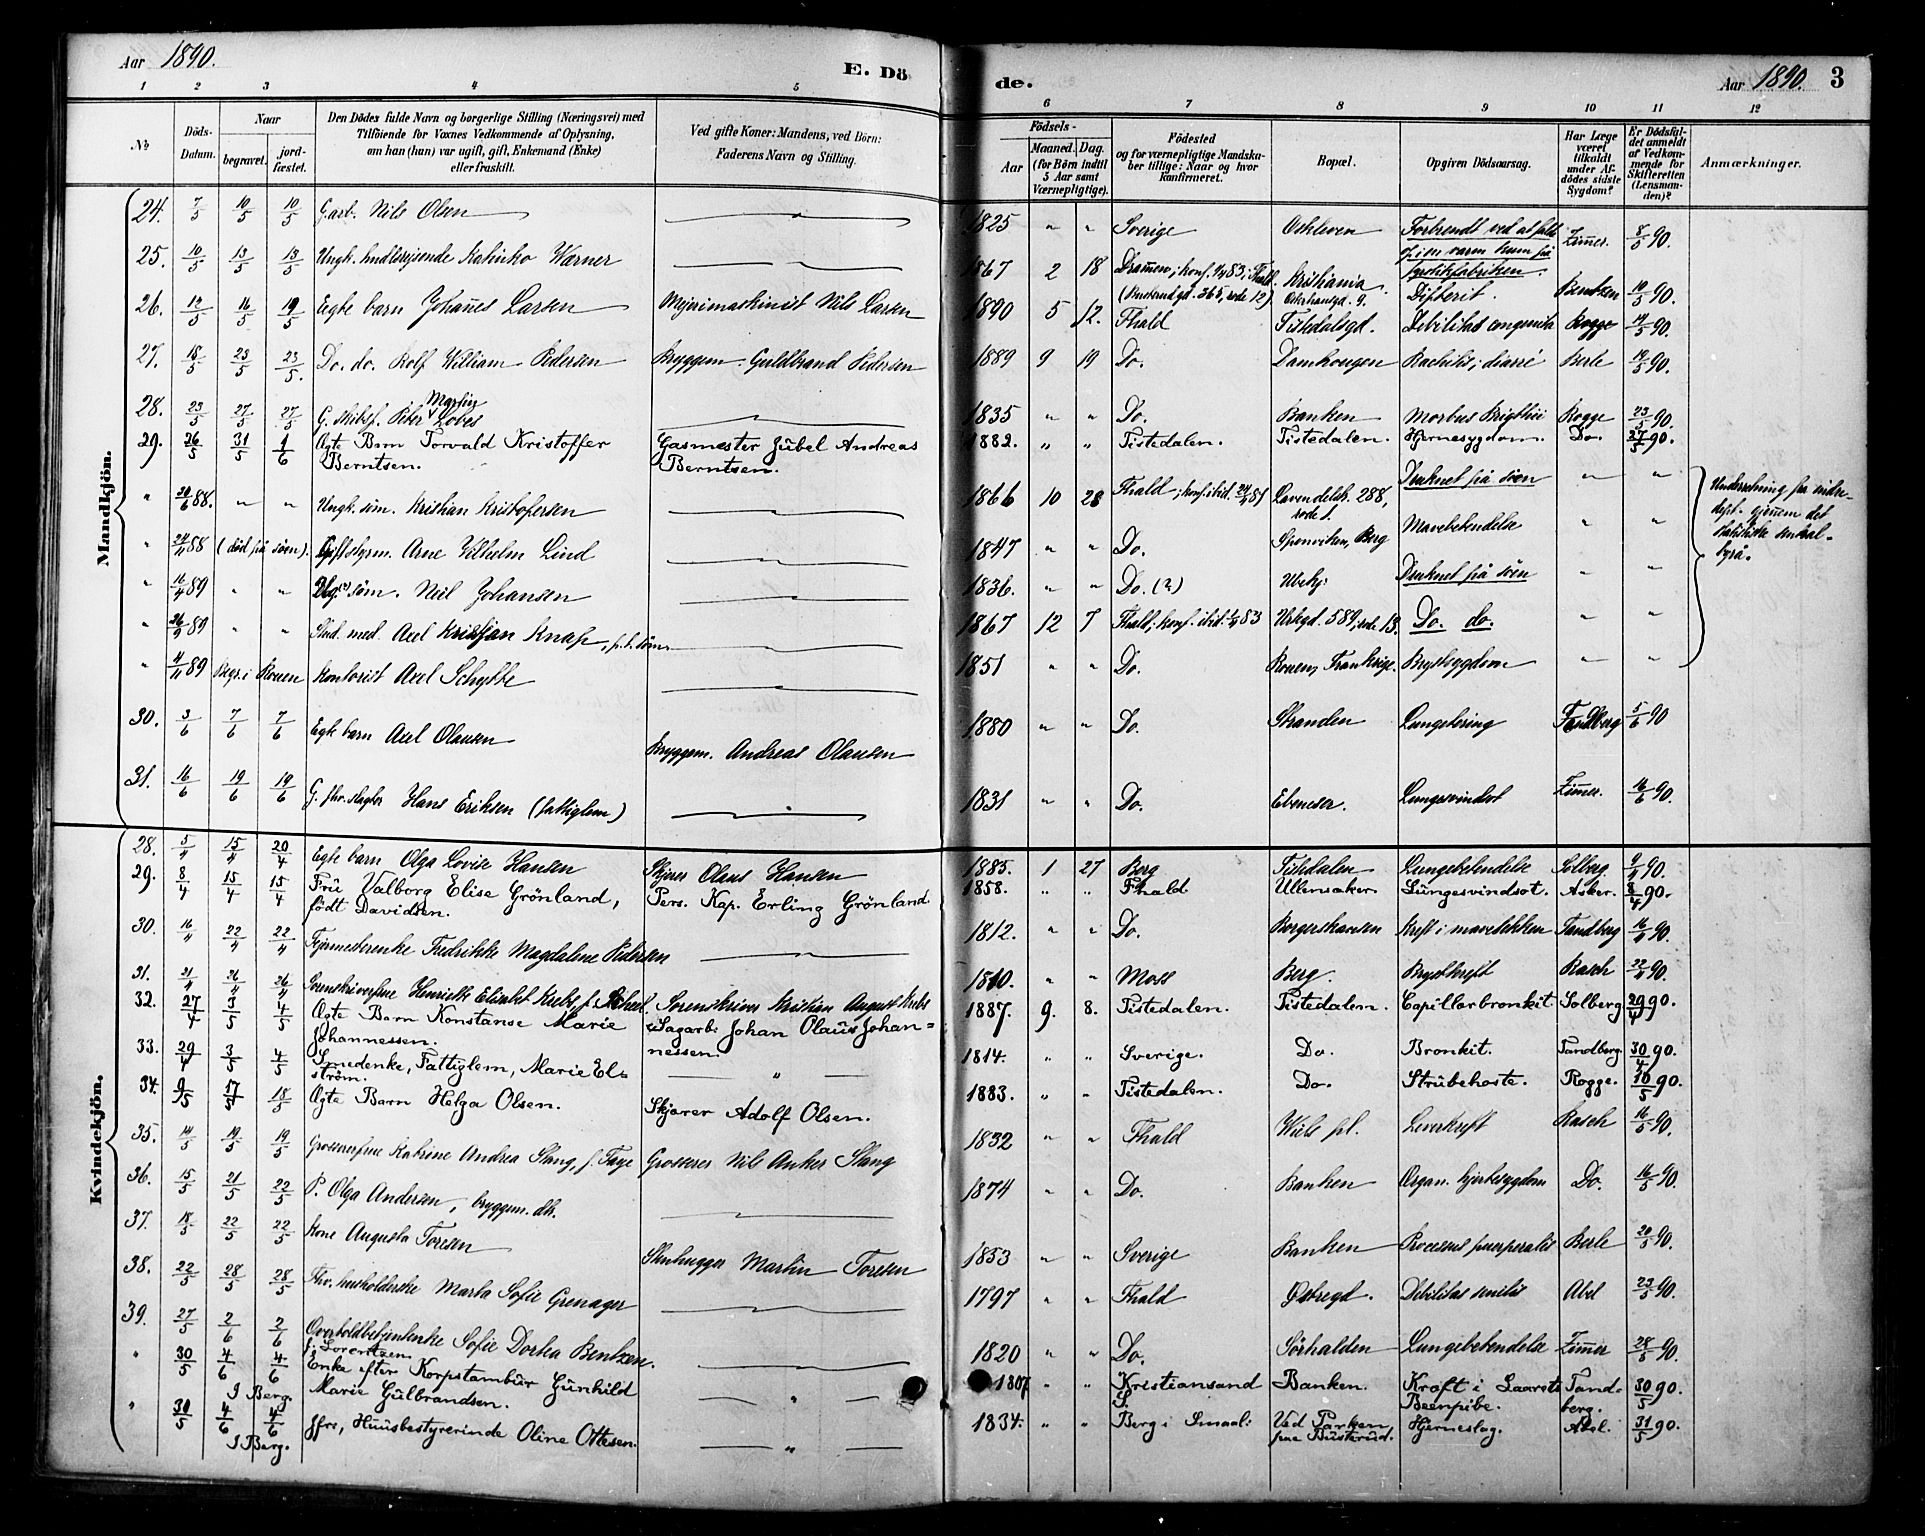 Aar 1890.
E. Dö
de.
Aar 1890.
3
1 2 3 4 5
6 7 8 9 10 11 12
No
Döds-Datum.
Naar
begravet.
jord-fæstet.
Den Dödes fulde Navn og borgerlige Stilling (Næringsvei) med
Tilföiende for Voxnes Vedkommende af Oplysning,
om han (hun) var ugift, gift, Enkemand (Enke)
eller fraskilt.
Ved gifte Koner: Mandens, ved Börn:
Faderens Navn og Stilling.
Födsels-
Aar
Maaned. Dag.
(for Börn indtil
5 Aar samt
Værnepligtige).
Födested
og for værnepligtige Mandska-
ber tillige: Naar og hvor
konfirmeret.
Bopæl.
Opgiven Dödsaarsag.
Har Læge
været
tilkaldt
under Af-
dödes sidste
Sygdom?
Er Dödsfal-
det anmeldt
af Vedkom-
mende for
Skifteretten
(Lensman-
den)?
Anmærkninger.
Mandkjön.
24. 7/5 10/5 10/5 Garb. Nils Olsen 1825 " " Sverige Forbrendt ved at falde Zimmer. 8/5 90.
25. 10/5 13/5 13/5 Ungk. Werner 1867 2 18 Drammen; konf. Kristiania Difterit. Bentzen 10/5 90.
26. 12/5 16/5 19/5 Egte barn Johanes Larsen Mejerimaskinist Nils Larsen 1890 5 12. Fhald Tistedalsgd. Debilitas congenita Rogge 14/5 90.
27. 18/5 23/5 23/5. Do. do. Rolf William Pedersen Bryggem. Guldbrand Pedersen 1889 9 19 Do. Damhougen Rachitis; diarré Berle 19/5 90.
28. 23/5 27/5 27/5 G. skibsf. Peter Martin Lobes 1835 " " Do. Banken Morbus Brigthii Rogge 23/5 90.
29. 26/5 31/5 1/6 Ægte Barn Torvald Kristoffer Berntsen. Gasmester Jubel Andreas Berntsen. 1882. " " Tistedalen. Tistedalen. Hjernesygdom. Do. 27/5 90.
" 30/6 88. " " Ungk. søm. Kristian Kristofersen 1866 10 28 Fhald; konf. ibid. 288, rode 1. Druknet på søen " "
" 24/11 88 (død på søen). Arne Vilhelm Lind 1847 " " Do. Sponviken, Berg Mavebetendelse " "
" 16/4 89 " " søm. Neil Johansen 1836. " " Do. (?) Ubekj. Druknet på søen " "
" 26/9 89 " " Stud. med. Axel Kristian Knap, p.t. søm. 1867 12 7 Fhald; konf. ibid. 83 589, rode 13. Do. do. " "
" 4/11 89 Begr. i Rouen Kontorist Axel Schytte 1851 " " Do. Rouen, Frankrige. Brystsygdom " "
Underretning fra indre-
dept. gjennem det
statistiske sentral-
byrå.
30. 3/6 7/6 7/6 Egte barn Axel Olausen Bryggem. Andreas Olausen 1880 " " Do. Stranden Tandberg 5/6 90
31. 16/6 19/6 19/6 G. fhv. slagter Hans Eriksen (fattiglem) 1831 " " Do. Ebeneser. Lungesvindsot Zimmer. 16/6 90.
Kvindekjön.
28. 5/4 15/4 20/4 Egte barn Olga Lovise Hansen Skjærer Olaus Hansen 1885. 1 27 Berg Tistedalen Lungebetendelse Solberg 9/4 90.
29. 8/4 15/4 15/4 Frü Valborg Elise Grönland, födt Davidsen. Pers. Kap. Erling Grönland 1858. " " Fhald Ullensaker. Lungesvindsot. Asker. 8/4 90.
30. 16/4 22/4 22/4 Fredrikke Magdalene Pedersen 1812. " " Do. Borgerskansen Kreft i mavesekken Tandberg 16/4 90.
31. 21/4 26/4 26/4 Sorenskriverfrue Henriette Elisabet Krebs f. Sorenskriver Kristian August Krebs 1810 " " Moss Berg. Brystkreft Rasch 22/4 90.
32. 27/4 3/5 4/5 Ægte Barn Konstanse Marie Johannessen. Sagarb. Johan Olaus Johannessen. 1887. 9. 8. Tistedalen. Tistedalen. Capillærbronkit. Solberg 29/4 90.
33. 29/4 3/5 4/5 Smedenke, Fattiglem, Marie Elström. " 1814. " " Sverige. Do. Bronkit. Tandberg. 30/4 90.
34. 9/5 17/5 18/5 Ægte Barn Helga Olsen. Skjærer Adolf Olsen. 1883. " " Tistedalen. Do. Strubehoste. Rogge. 10/5 90.
35. 14/5 19/5 19/5 Grossererfrue Katrine Andrea Stang, f. Faye Grosserer Nils Anker Stang 1832 " " Fhald Wiels pl. Leverkreft Rasch 16/5 90.
36. 15/5 21/5 22/5 P. Olga Andersen, bryggem. dtr. 1874 " " Do. Banken Organ. hjertesygdom Do. 16/5 90.
37. 18/5 22/5 22/5 Kone Augusta Toresen Stenhugger Martin Toresen 1853 " " Sverige Banken Processus puerperalis Berle 20/5 90.
38. 22/5 28/5 28/5 Fhv. husholderske Marta Sofie Grenager 1797 " " Fhald Østregd. Debilitas senilis Abel 23/5 90.
39. 27/5 2/6 2/6 Overtoldbetjentenke Sofie Dortea Bentzen. f. Lorentzen 1820 " " Do. Sørhalden Lungebetendelse Zimmer 28/5 90.
" 30/5 4/6 4/6 I Berg. Enke efter Korpstambür Gunhild Marie Gulbrandsen. " 1807 " " Kristiansand S. Banken. Kræft i Laarets Beenpibe. Tandberg. 30/5 90.
" 30/5 4/6 4/6 I Berg. Jfr., Huusbestyrerinde Oline Ottesen. " 1834. " " Berg i Smaal: Ved Parken Hjerneslag. Abel. 31/5 90.